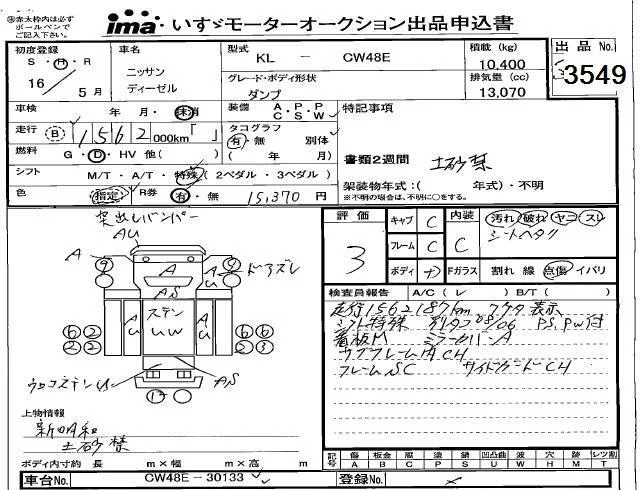 ㊟赤太枠内は必ず
ボールペンで
ご記入下さい。
ima いすゞモーターオークション出品申込書
初度登録
S・H・R
16 / 5 月
車名
ニッサン
ディーゼル
型式
KL - CW48E
グレード・ボディ形状
ダンプ
積載 (kg)
10,400
排気量 (cc)
13,070
出品 No.
3549
車検 年・月・抹消
装備 A・P・P C・S・W
特記事項
走行 B 1562 000km「 」
タコグラフ
有・無 別体
( 年 月)
燃料 G・D・HV 他( )
書類2週間 土砂禁
シフト M/T・A/T・特殊(2ペダル・3ペダル)
架装物年式:( 年式)・不明
※不明の場合は、不明に○をする。
色 (指定) R券 有・無 15,370 円
突出しバンパー
AU
A
A
AU
ドアズレ
AS
ステン
UW
AU
AU
ウロコステンU
AS
上物情報
新明和
土砂禁
ボディ内寸約 長 m×幅 m×高 m
評価
3
キャブ C
フレーム C
ボディ +
内装
C
汚れ・破れ・ヤコ・スレ
シートヘタリ
Fガラス 割れ 線 点傷 イバリ
検査員報告 A/C( レ ) B/T( )
走行1562187km アワタ 表示
シフト特殊 別タコ 08/06 PS,PW付
看板M ミラーカバーA
サブフレームACH
フレームSC サイドガードCH
記号 傷 板金 腐 塗 錆 凹 凸 曲 波 穴 跡 レツ割
A B C P S U W H M T
車台No. CW48E-30133
登録No.